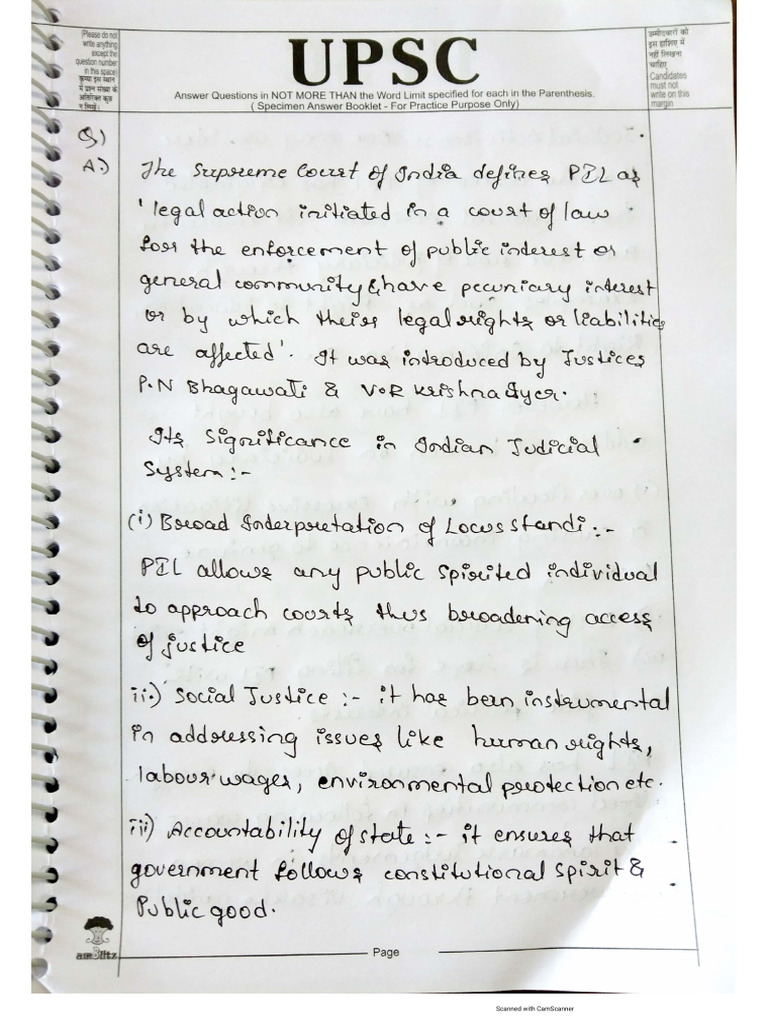 (Please do not
write anything
except the
question number
in this space)
कृपया इस स्थान
में प्रश्न संख्या के
अतिरिक्त कुछ
न लिखें।
UPSC
Answer Questions in NOT MORE THAN the Word Limit specified for each in the Parenthesis.
( Specimen Answer Booklet - For Practice Purpose Only)
उम्मीदवारों को
इस हाशिए में
नहीं लिखना
चाहिए
Candidates
must not
write on this
margin
Q1)
A.) The Supreme Court of India defines PIL as
'legal action initiated in a court of law
for the enforcement of public interest or
general community & have pecuniary interest
or by which their legal rights or liabilities
are affected'. It was introduced by Justices
P.N Bhagawati & V.R Krishna Iyer.
Its Significance in Indian Judicial
System :-
(i) Broad Interpretation of Locus standi :-
PIL allows any public spirited individual
to approach courts thus broadening access
of justice
ii.) Social Justice :- it has been instrumental
in addressing issues like human rights,
labour wages, environmental protection etc.
iii) Accountability of state :- it ensures that
government follows constitutional spirit &
Public good.
Page
Scanned with CamScanner